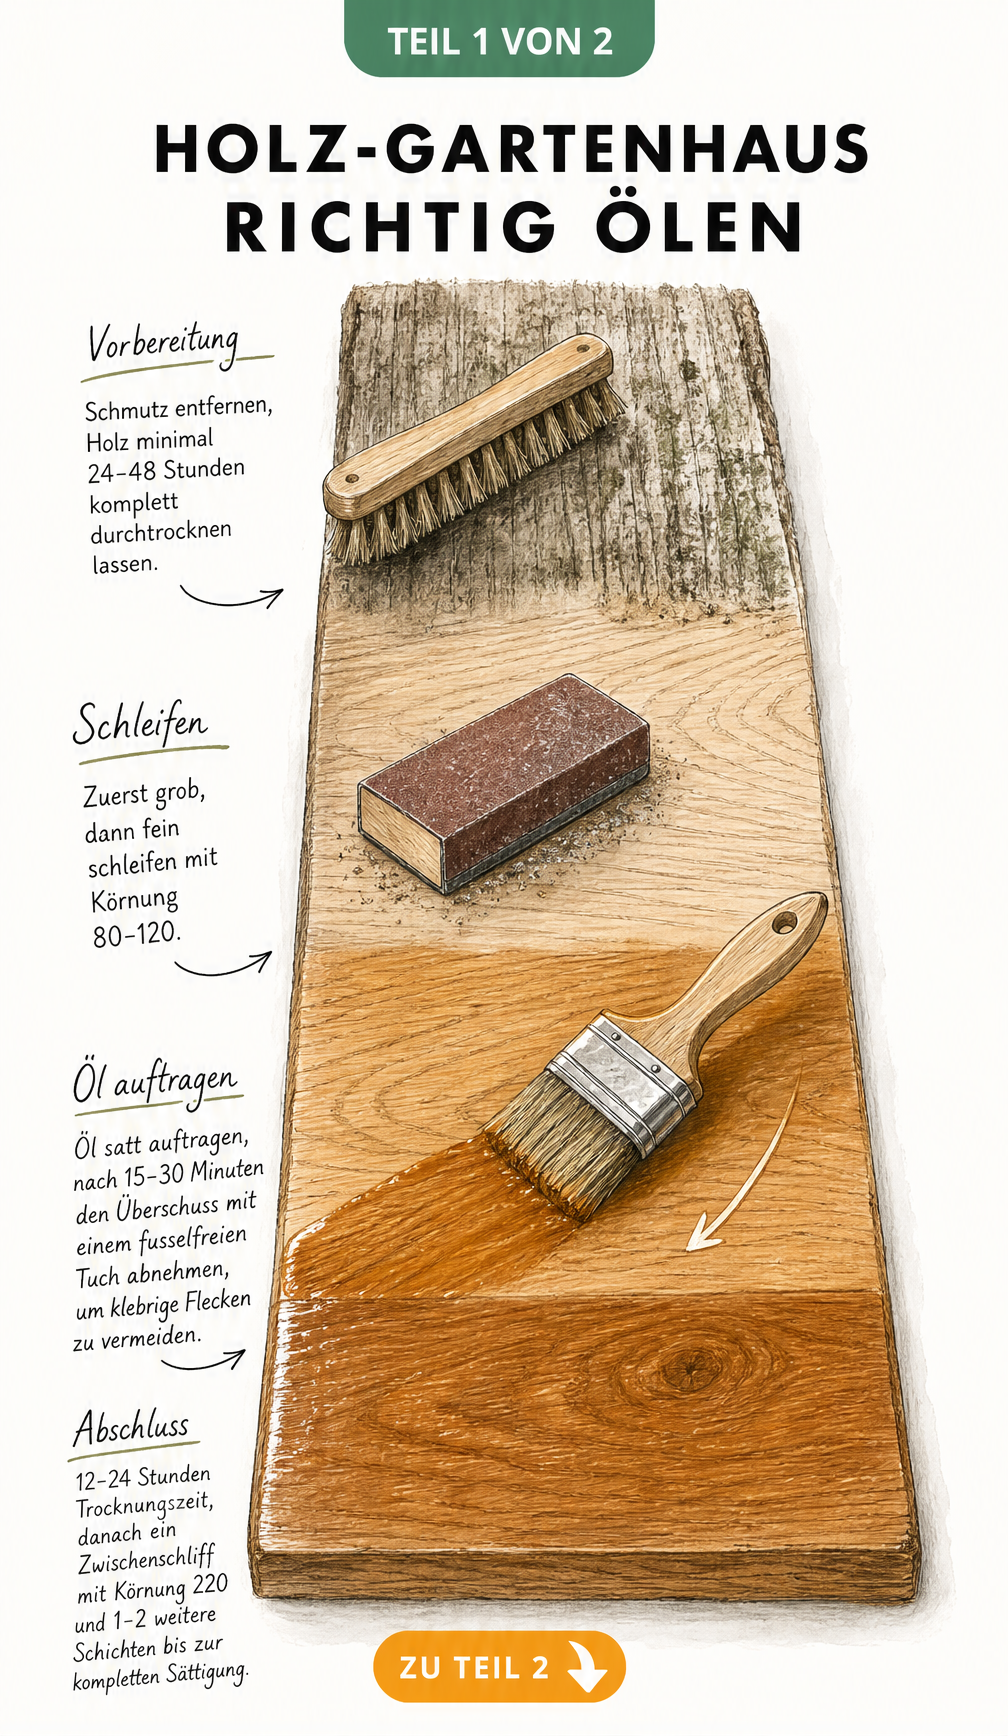 TEIL 1 VON 2
HOLZ-GARTENHAUS
RICHTIG ÖLEN
Vorbereitung
Schmutz entfernen,
Holz minimal
24–48 Stunden
komplett
durchtrocknen
lassen.
Schleifen
Zuerst grob,
dann fein
schleifen mit
Körnung
80–120.
Öl auftragen
Öl satt auftragen,
nach 15–30 Minuten
den Überschuss mit
einem fusselfreien
Tuch abnehmen,
um klebrige Flecken
zu vermeiden.
Abschluss
12–24 Stunden
Trocknungszeit,
danach ein
Zwischenschliff
mit Körnung 220
und 1–2 weitere
Schichten bis zur
kompletten Sättigung.
ZU TEIL 2